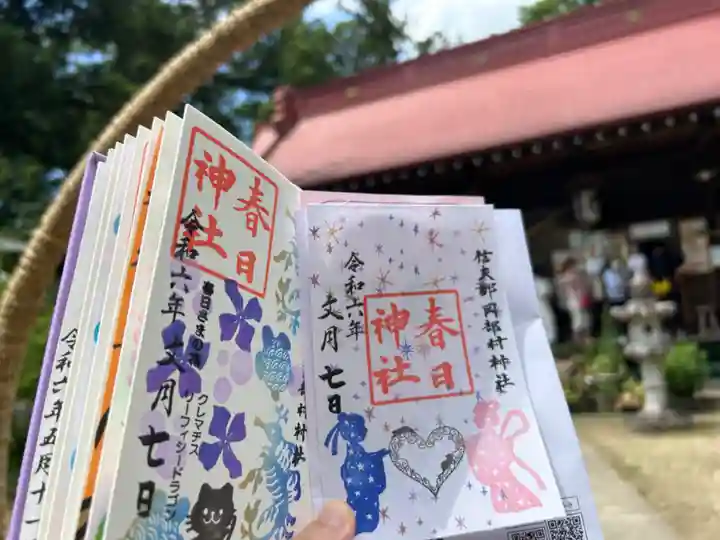 信夫郡岡部村神社
春日
神社
令和六年
文月七日
春日
神社
令和六年
文月七日
春日さまの
クレマチス
リーフィシードラゴン
村神社